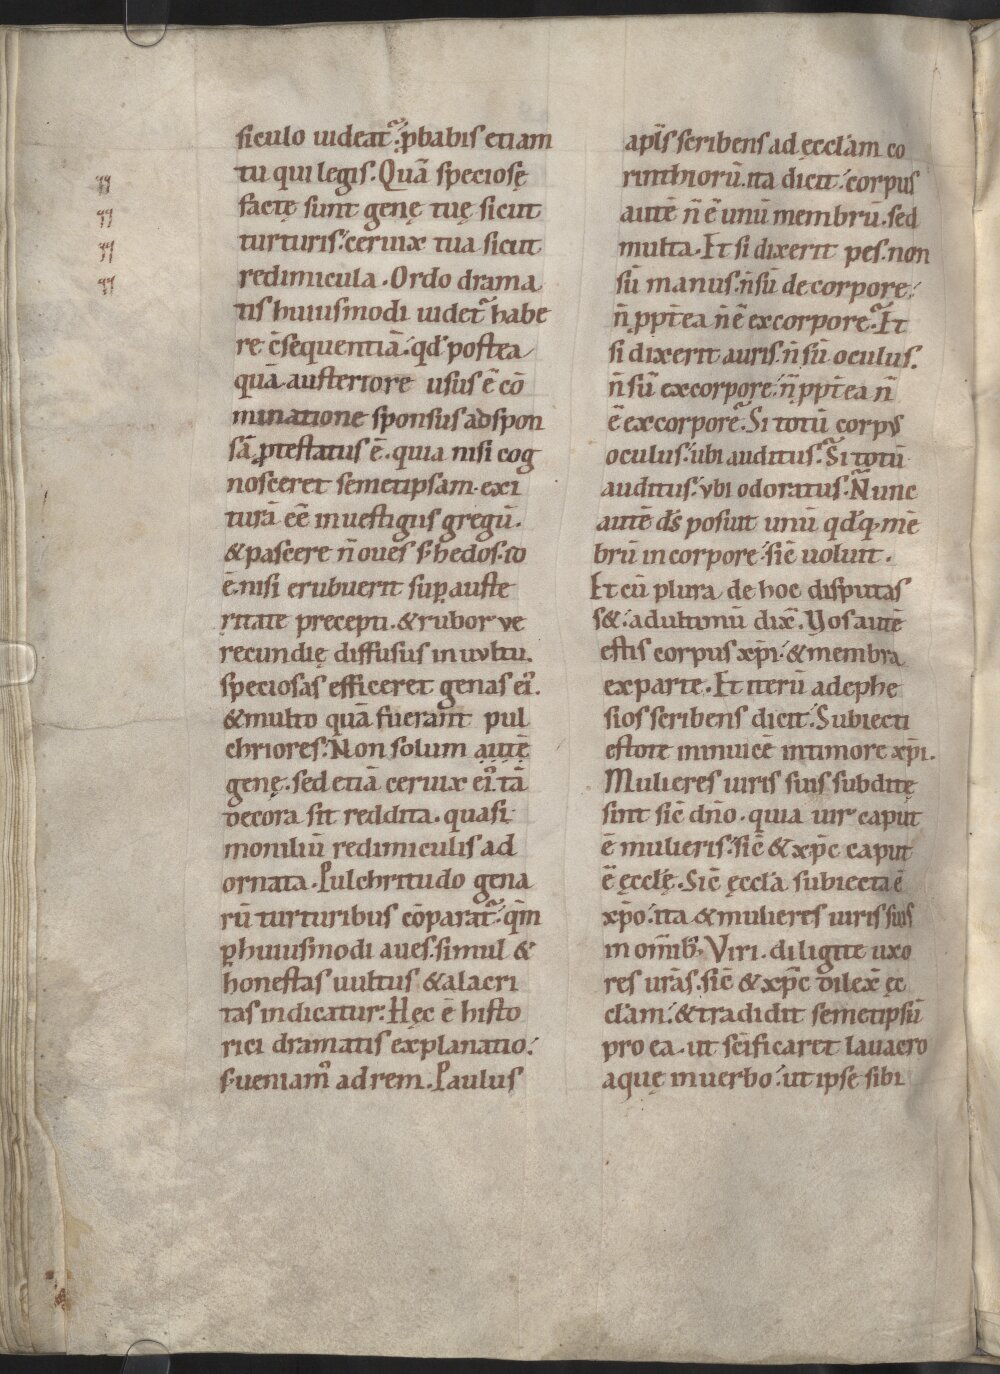 siculo uideat᷑. ꝓbabis etiam
tu qui legis. Quā speciosę
factę sunt genę tuę sicut
turturis. ceruix tua sicut
redimicula. Ordo drama
tis huiusmodi uidet᷑ habe
re c̄sequentiā. qđ postea
quā austeriore usus ē cō
minatione sponsus ad spon
sā ꝓtestatus ē. quia nisi cog
nosceret semetipsam. exi
turā eē in uestigiis gregū.
& pascere n̄ oues s; hedos. to
ē. nisi erubuerit suꝑ auste
ritate precepti. & rubor ve
recundię diffusus in uvltu.
speciosas efficeret genas ei᷒.
& multo quā fuerant pul
chriores. Non solum autē
genę. sed etiā ceruix ei᷒. tā
decora sit reddita. quasi
moniliū redimiculis ad
ornata. Pulchritudo gena
rū turturibus cōparat᷑. qm̄
ꝑ huiusmodi aues. simul &
honestas uultus & alacri
tas indicatur. Hęc ē histo
rici dramatis explanatio.
s; ueniam᷒ ad rem. Paulus
apl̄s scribens ad ęccl̄am co
rinthiorū. ita dicit. corpus
autē n̄ ē unū membrū. sed
multa. Et si dixerit pes. non
sū manus. n̄ sū de corpore.
n̄ ppt̄ea n̄ ē ex corpore. Et
si dixerit auris. n̄ sū oculus.
n̄ sū ex corpore. n̄ ppt̄ea n̄
ē ex corpore. Si totū corpus
oculus. ubi auditus. Si totū
auditus. vbi odoratus. Nunc
autē ds̄ posuit unū qđq; mē
brū in corpore. sic̄ uoluit.
Et cū plura de hoc disputas
s&. ad ultimū dix̄. Vos autē
estis corpus xp̄i. & membra
ex parte. Et iterū ad ephe
sios scribens dicit. Subiecti
estote inuicē in timore xp̄i.
Mulieres uiris suis subditę
sint sic̄ dn̄o. quia uir caput
ē mulieris. sic̄ & xp̄c caput
ē ęccl̄ę. Sic̄ ęccl̄a subiecta ē
xp̄o. ita & mulieres uiris suis
in om̄ib;. Viri. diligite uxo
res urās. sic̄ & xp̄c dilex̄ ęc
cl̄am. & tradidit semetipsū
pro ea. ut sc̄ificaret lauacro
aquę in uerbo. ut ipse sibi